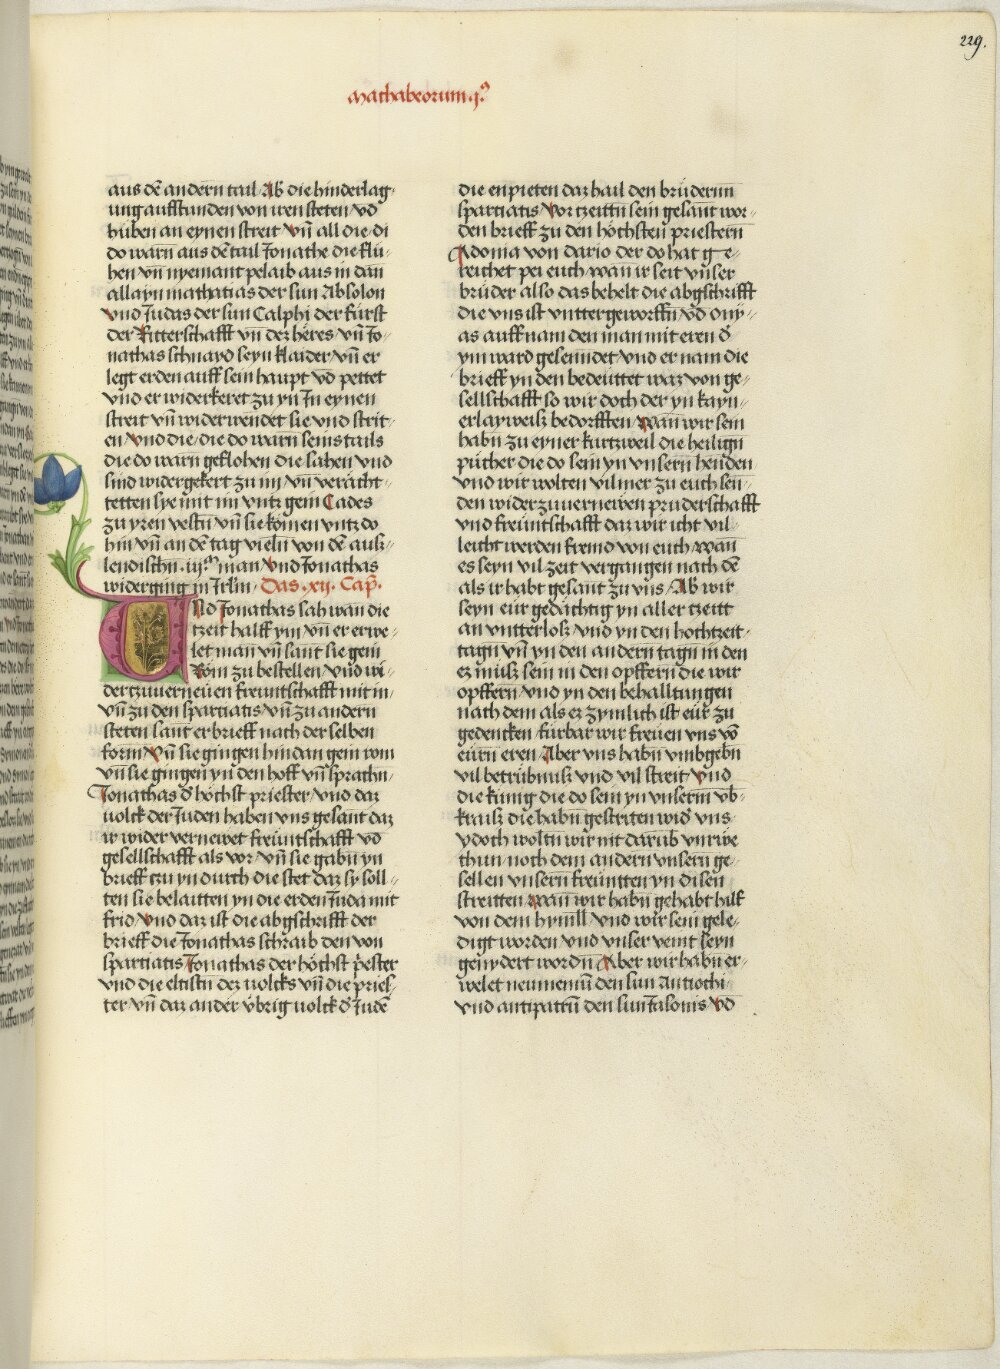 229.
Mathabeorum .j.º
aus dē andern tail Ab die hinderlag⸗
ung aufstunden von iren steten vō
huben an eynen streit vn̄ all die di
do warn aus dē tail Jonathe die flu⸗
hen vn̄ nyemant pelaib aus in dan
allayn mathatias der sun Absolon
vnd Judas der sun Calphi der fürst
der Ritterschafft vn̄ dez heres vn̄ Jo⸗
nathas schnayd seyn klaider vn̄ er
legt erden auff sein haupt vō pettet
vnd er widerkeret zu yn In eynen
streit vn̄ widerwendet sie vnd strit⸗
en vnd die/die do warn seins tails
die do warn geflohen die sahen vnd
sind widergekert zu im vn̄ veracht⸗
tetten sye mit im vntz gein Cades
zu yren vestn̄ vn̄ sie komen vntz do
hin vn̄ an dē tag vieln von dē aus⸗
lendischn̄ .iijᵐ man vnd Jonathas
widerging in Jrl̄m/ Das .xij. Cap̄.
Und Jonathas sah wan die
tzeit halff ym vn̄ er erwe⸗
let man vn̄ sant sie gein
Rom zu bestellen/vnd wi⸗
dertzuuerneuen freuntschafft mit in/
vn̄ zu den spartiatis/vn̄ zu andern
steten sant er brieff nach der selben
form vn̄ sie gingen hindan gein rom
vn̄ sie gingen yn den hoff vn̄ sprachn̄/
Jonathas d̄ höchst priester/vnd daz
uolck der Juden haben vns gesant daz
ir wider vernewet freuntschafft vō
gesellschafft als vor/vn̄ sie gabn̄ yn
brieff tzu yn durch die stet daz sy soll⸗
ten sie belaitten yn die erden Juda mit
frid/vnd daz ist die abgschrifft der
brieff die Jonathas schraib den von
spartiatis Jonathas der höchst p̄ester
vnd die eltistn̄ dez uolcks vn̄ die pries⸗
ter vn̄ daz ander übrig uolck d̄ Judē
die enpieten daz hail den brüdernn
spartiatis Vor tzeittn̄ sein gesant wor⸗
den brieff zu den höchsten priestern
Adonia von dario der do hat g e⸗
reichet pei euch wan ir seit vnser
brüder also das behelt die abgschrifft
die vns ist vnttergeworffn̄ vō ony⸗
as auff nam den man mit eren d̄
ym ward gesenndet vnd er nam die
brieff yn den bedeuttet waz von ge⸗
sellschafft so wir doch der yn kayn⸗
erlayweisz bedorfften/ wan wir sein
habn̄ zu eyner kurtzweil die heilign̄
pücher die do sein yn vnsern henden
vnd wir wolten vil mer zu euch sen⸗
den wider zuuerneuen pruderschafft
vnd freuntschafft daz wir icht vil⸗
leicht werden fremd von euch/wan
es seyn vil zeit vergangen nach dē
als ir habt gesant zu vns/ Ab wir
seyn eur gedächtig yn aller tzeitt
an vntterlosz vnd yn den hochtzeit⸗
tagn̄ vn̄ yn den andern tagn̄ in den
ez musz sein in den opffern die wir
opffern/vnd yn den behalltungen
nach dem als ez zymlich ist eur zu
gedencken/fürbar wir freuen vns vō
eurn eren/Aber vns habn̄ vmbgebn̄
vil betrübnusz vnd vil streit/vnd
die künig die do sein yn vnserm vb⸗
kraisz die habn̄ gestriten wid̄ vns
ydoch woltn̄ wir nit darüb vnrwe
thun noch dem andern vnsern ge⸗
sellen vnsern freuntten yn disen
streitten wan wir habn̄ gehabt hilf
von dem hymll/vnd wir sein gele⸗
digt worden vnd vnser veint seyn
genydert wordn̄ Aber wir habn̄ er⸗
welet neumeniū den sun Antiochi
vnd antipatrū den sun Jasonis vō